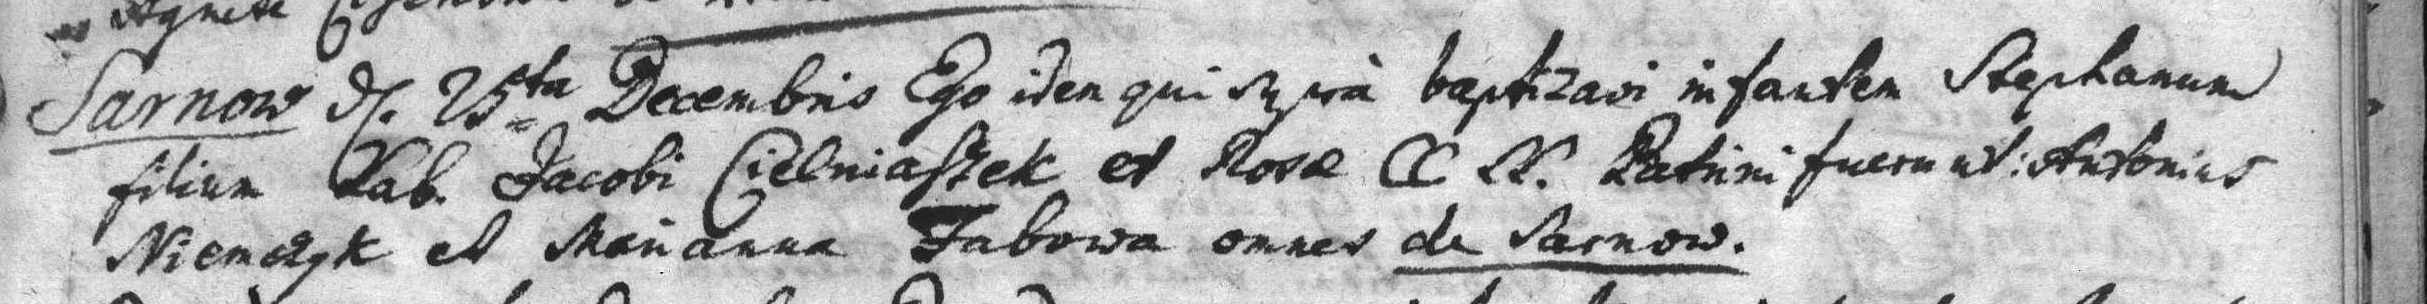 Agnete
Sarnow d. 25ta Decembris Ego idem qui supra baptizavi infantem Stephanum
filium Lab. Jacobi Cielniaszek et Rosæ CC LL. Patrini fuerunt: Antonius
Niemczyk et Marianna Fabowa omnes de Sarnow.